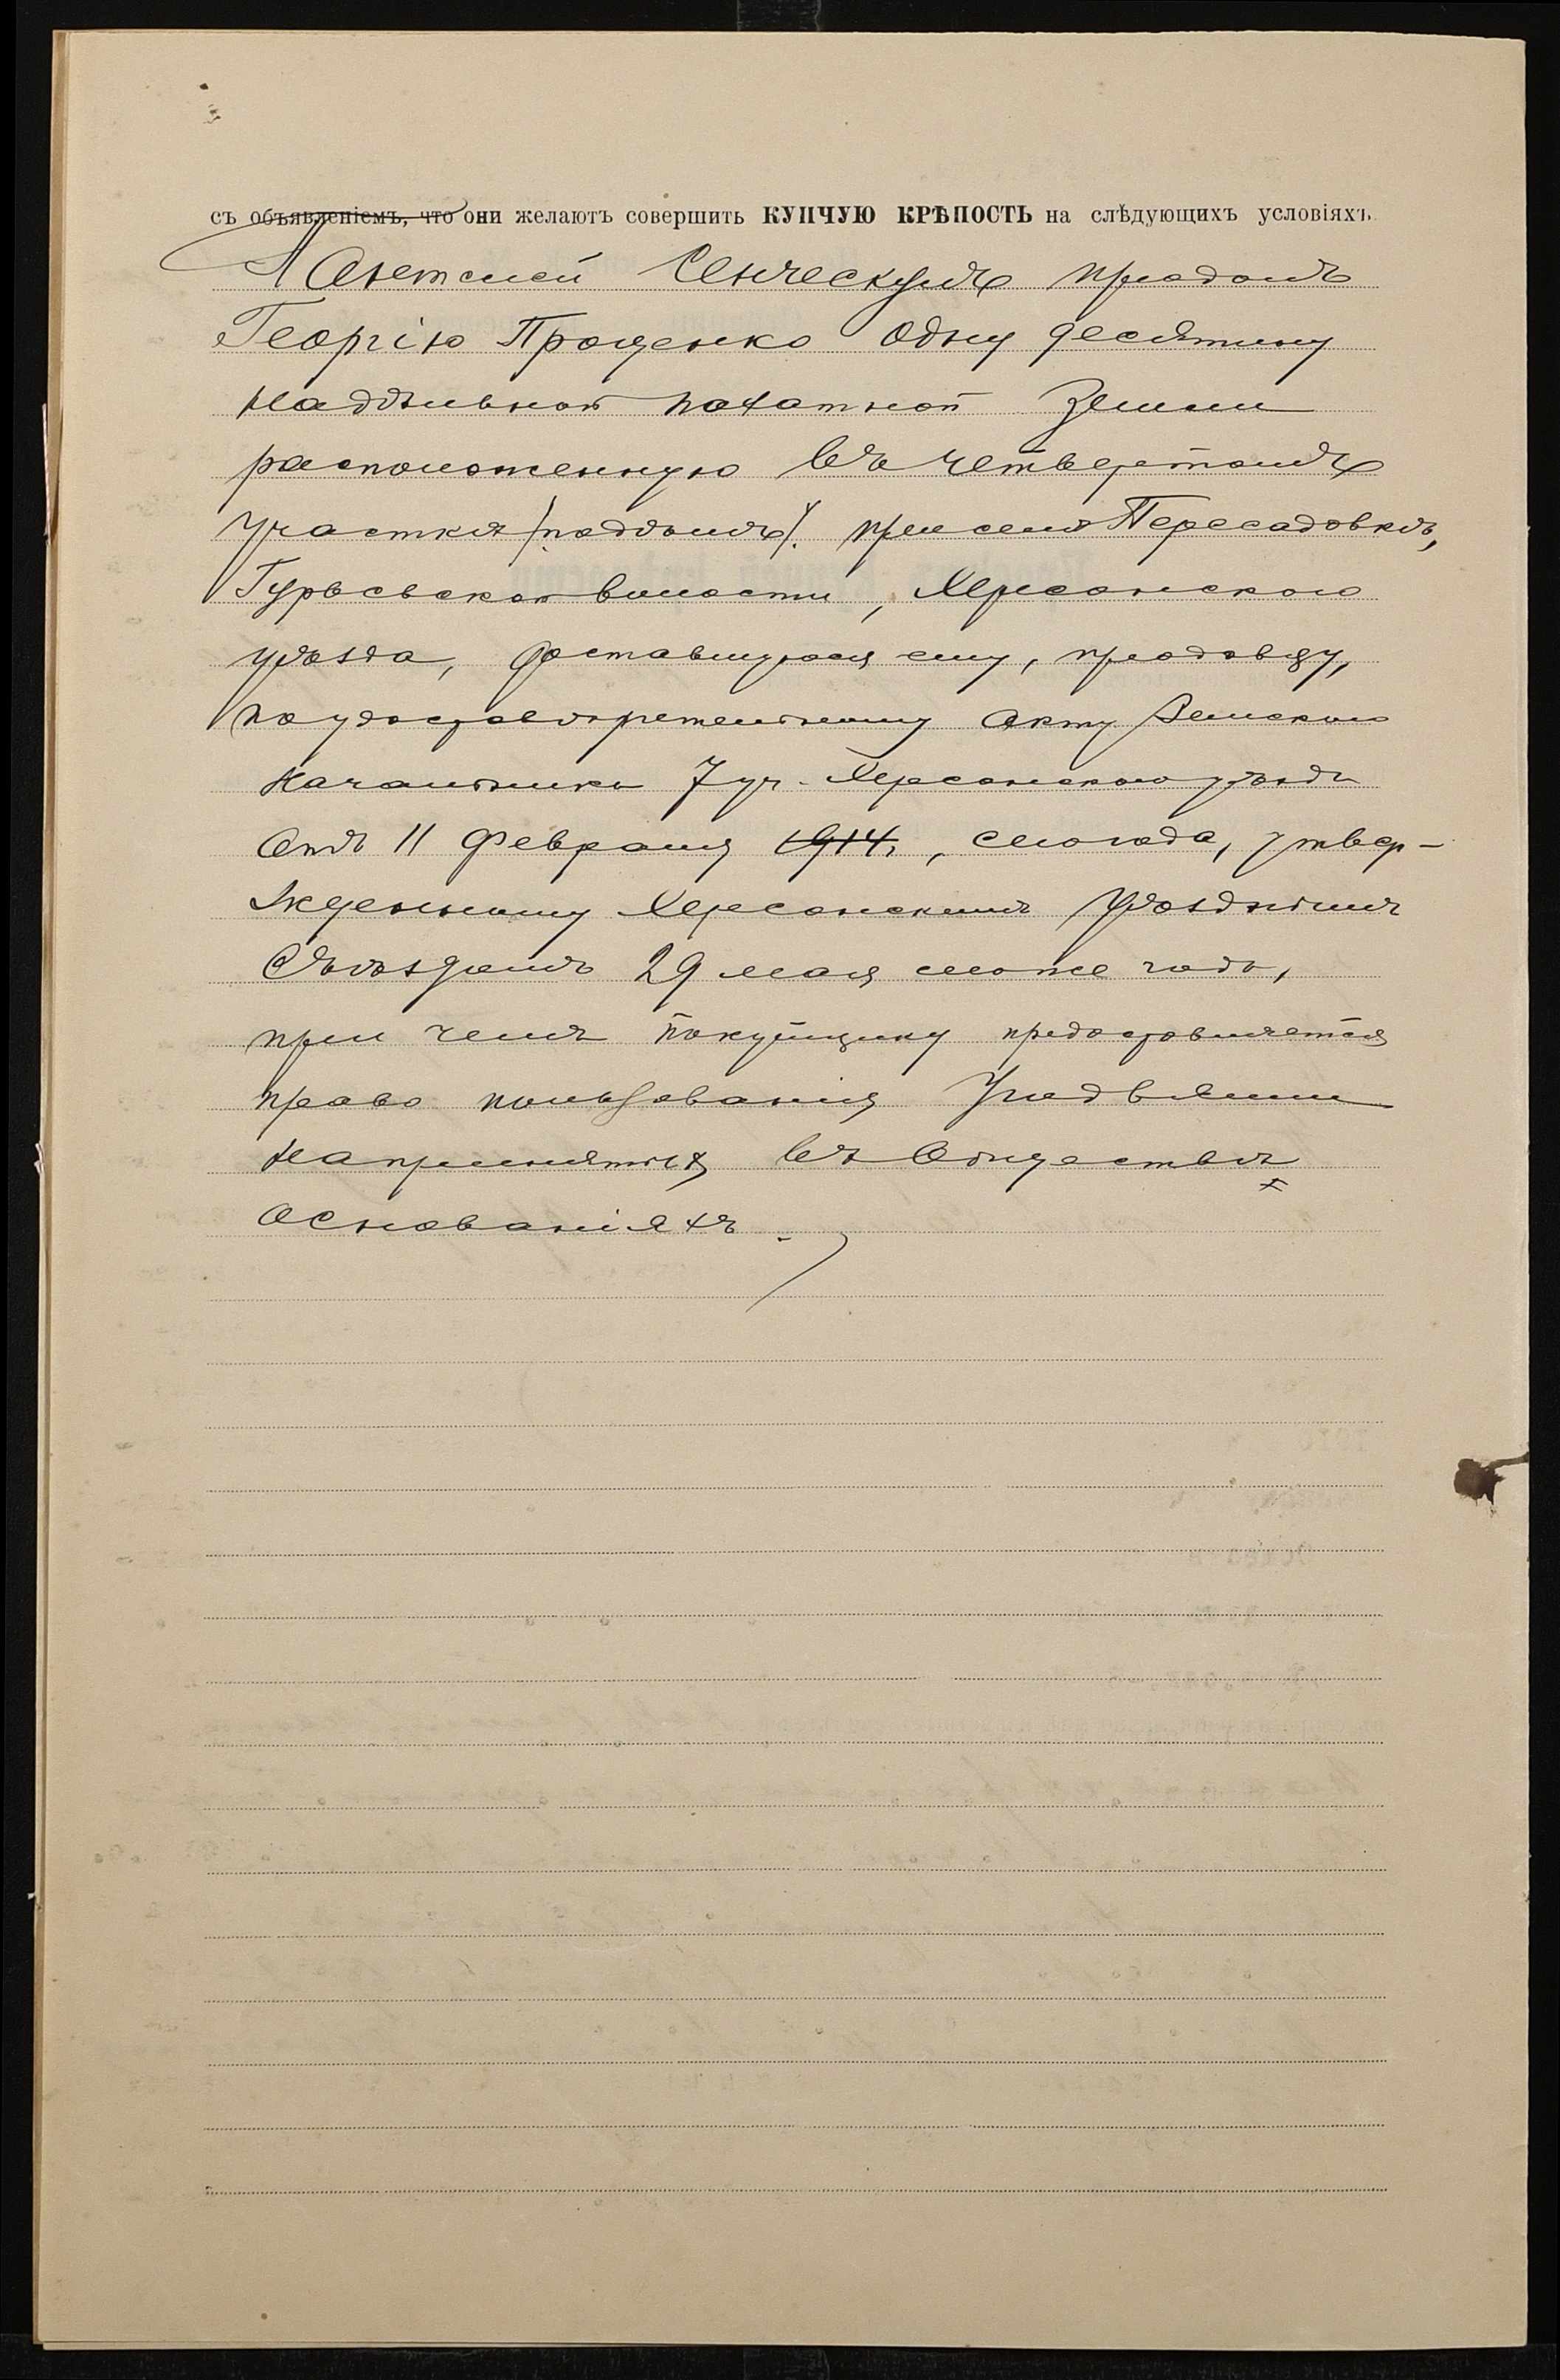 съ объявленіемъ, что они желаютъ совершить КУПЧУЮ КРѢПОСТЬ на слѣдующихъ условіяхъ
продалъ
Георгію Проценко одну десятину
надѣльной пахатной земли
расположенную въ четвертомъ
участкѣ при селѣ Пересадовкѣ,
Гурьевской волости, Херсонскаго
уѣзда, доставшуюся ему, продавцу,
по удостовѣрительному акту Земскаго
Начальника 7 уч. Херсонскаго уѣзда
отъ 11 Февраля 1914, сего года, утвер-
жденному Херсонскимъ Уѣзднымъ
Съѣздомъ 29 мая сего же года,
при чемъ покупщику предоставляется
право пользованія угодьями
на принятыхъ въ Обществѣ
основаніяхъ.